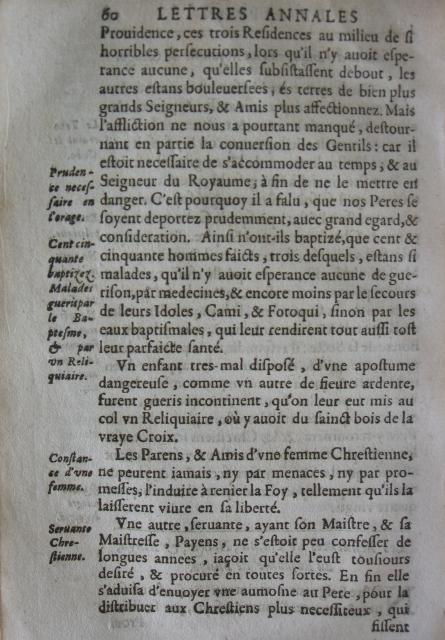 60 LETTRES ANNALES
Prouidence, ces trois Residences au milieu de si
horribles persecutions, lors qu'il n'y auoit espe-
rance aucune, qu'elles subsistassent debout, les
autres estans bouleuersees, és terres de bien plus
grands Seigneurs, & Amis plus affectionnez. Mais
l'affliction ne nous a pourtant manqué, destour-
nant en partie la conuersion des Gentils: car il
estoit necessaire de s'accommoder au temps, & au
Seigneur du Royaume, à fin de ne le mettre en
danger. C'est pourquoy il a falu, que nos Peres se
soyent deportez prudemment, auec grand egard, &
consideration. Ainsi n'ont-ils baptizé, que cent &
cinquante hommes faicts, trois desquels, estans si
malades, qu'il n'y auoit esperance aucune de gue-
rison, par medecines, & encore moins par le secours
de leurs Idoles, Cami, & Fotoqui, sinon par les
eaux baptismales, qui leur rendirent tout aussi tost
leur parfaicte santé.
Vn enfant tres-mal disposé, d'vne apostume
dangereuse, comme vn autre de fieure ardente,
furent gueris incontinent, qu'on leur eut mis au
col vn Reliquiaire, où y auoit du sainct bois de la
vraye Croix.
Les Parens, & Amis d'vne femme Chrestienne,
ne peurent iamais, ny par menaces, ny par pro-
messes, l'induire à renier la Foy, tellement qu'ils la
laisserent viure en sa liberté.
Vne autre, seruante, ayant son Maistre, & sa
Maistresse, Payens, ne s'estoit peu confesser de
longues annees, iaçoit qu'elle l'eust tousiours
desiré, & procuré en toutes sortes. En fin elle
s'aduisa d'enuoyer vne aumosne au Pere, pour la
distribuer aux Chrestiens plus necessiteux, qui
fissent
Pruden-
ce neces-
saire en
l'orage.
Cent cin-
quante
baptizez.
Malades
gueris par
le Ba-
ptesme,
& par
vn Reli-
quiaire.
Constan-
ce d'vne
femme.
Seruante
Chre-
stienne.